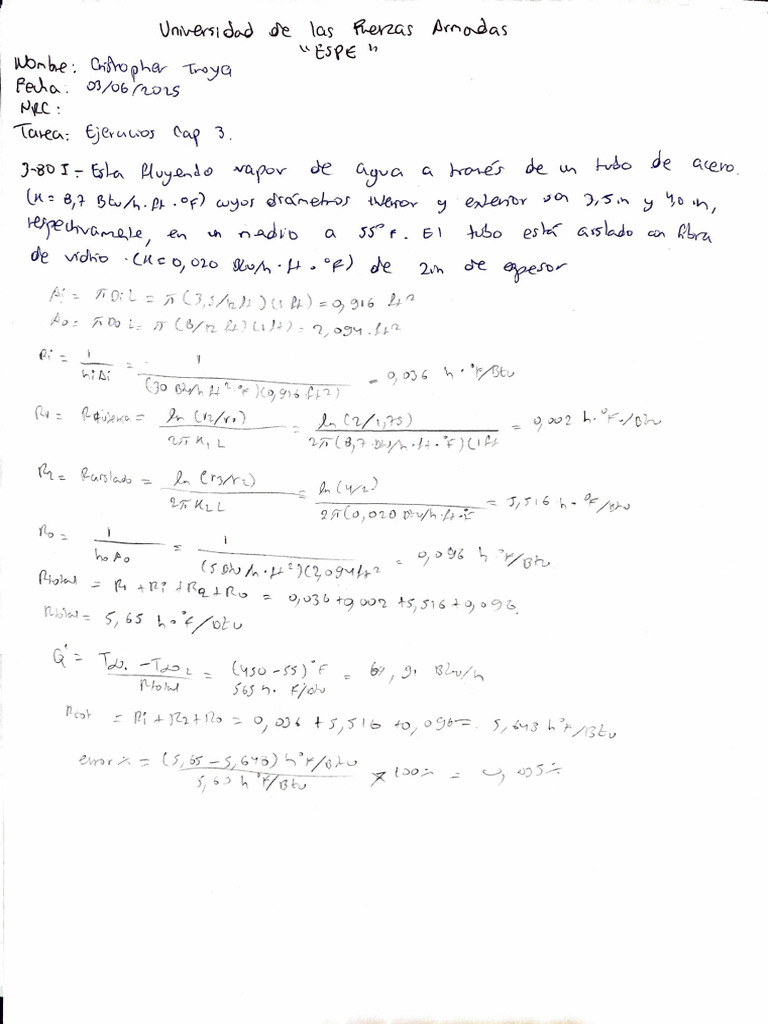 Universidad de las Fuerzas Armadas
"ESPE"
Nombre: Cristopher Troya
Fecha: 03/06/2025
NRC:
Tarea: Ejercicios Cap 3.
3-80 I.- Esta fluyendo vapor de agua a través de un tubo de acero.
(K = 8,7 Btu/h.ft.°F) cuyos diámetros interior y exterior son 3,5in y 4,0 in,
respectivamente, en un medio a 55°F. El tubo está aislado con fibra
de vidrio (K=0,020 Btu/h.ft.°F) de 2in de espesor
Ai = πDiL = π(3,5/12ft)(1ft) = 0,916 ft²
Ao = πDoL = π(8/12 ft)(1ft) = 2,094 ft²
Ri = 1/hiAi = 1/(30 Btu/h.ft².°F)(0,916 ft²) = 0,036 h.°F/Btu
R1 = = ln(r2/r1)/2πK1L = ln(2/1,75)/2π(8,7 Btu/h.ft.°F)(1ft = 0,002 h.°F/Btu
R2 = Raislado = ln(r3/r2)/2πK2L = ln(4/2)/2π(0,020 Btu/h.ft.°F = 5,516 h.°F/Btu
Ro = 1/hoAo = 1/(5Btu/h.ft²)(2,094ft² = 0,096 h°F/Btu
Rtotal = R1+Ri+R2+Ro = 0,036+0,002+5,516+0,096.
Rtotal = 5,65 h.°F/Btu
Q = T∞1 - T∞2/Rtotal = (450-55)°F/565 h. F/Btu = Btu/h
= Ri+R2+Ro = 0,036 + 5,516 +0,096 = 5,648 h°F/Btu
error% = (5,65-5,648) h°F/Btu/ h°F/Btu × 100% = 0,035%